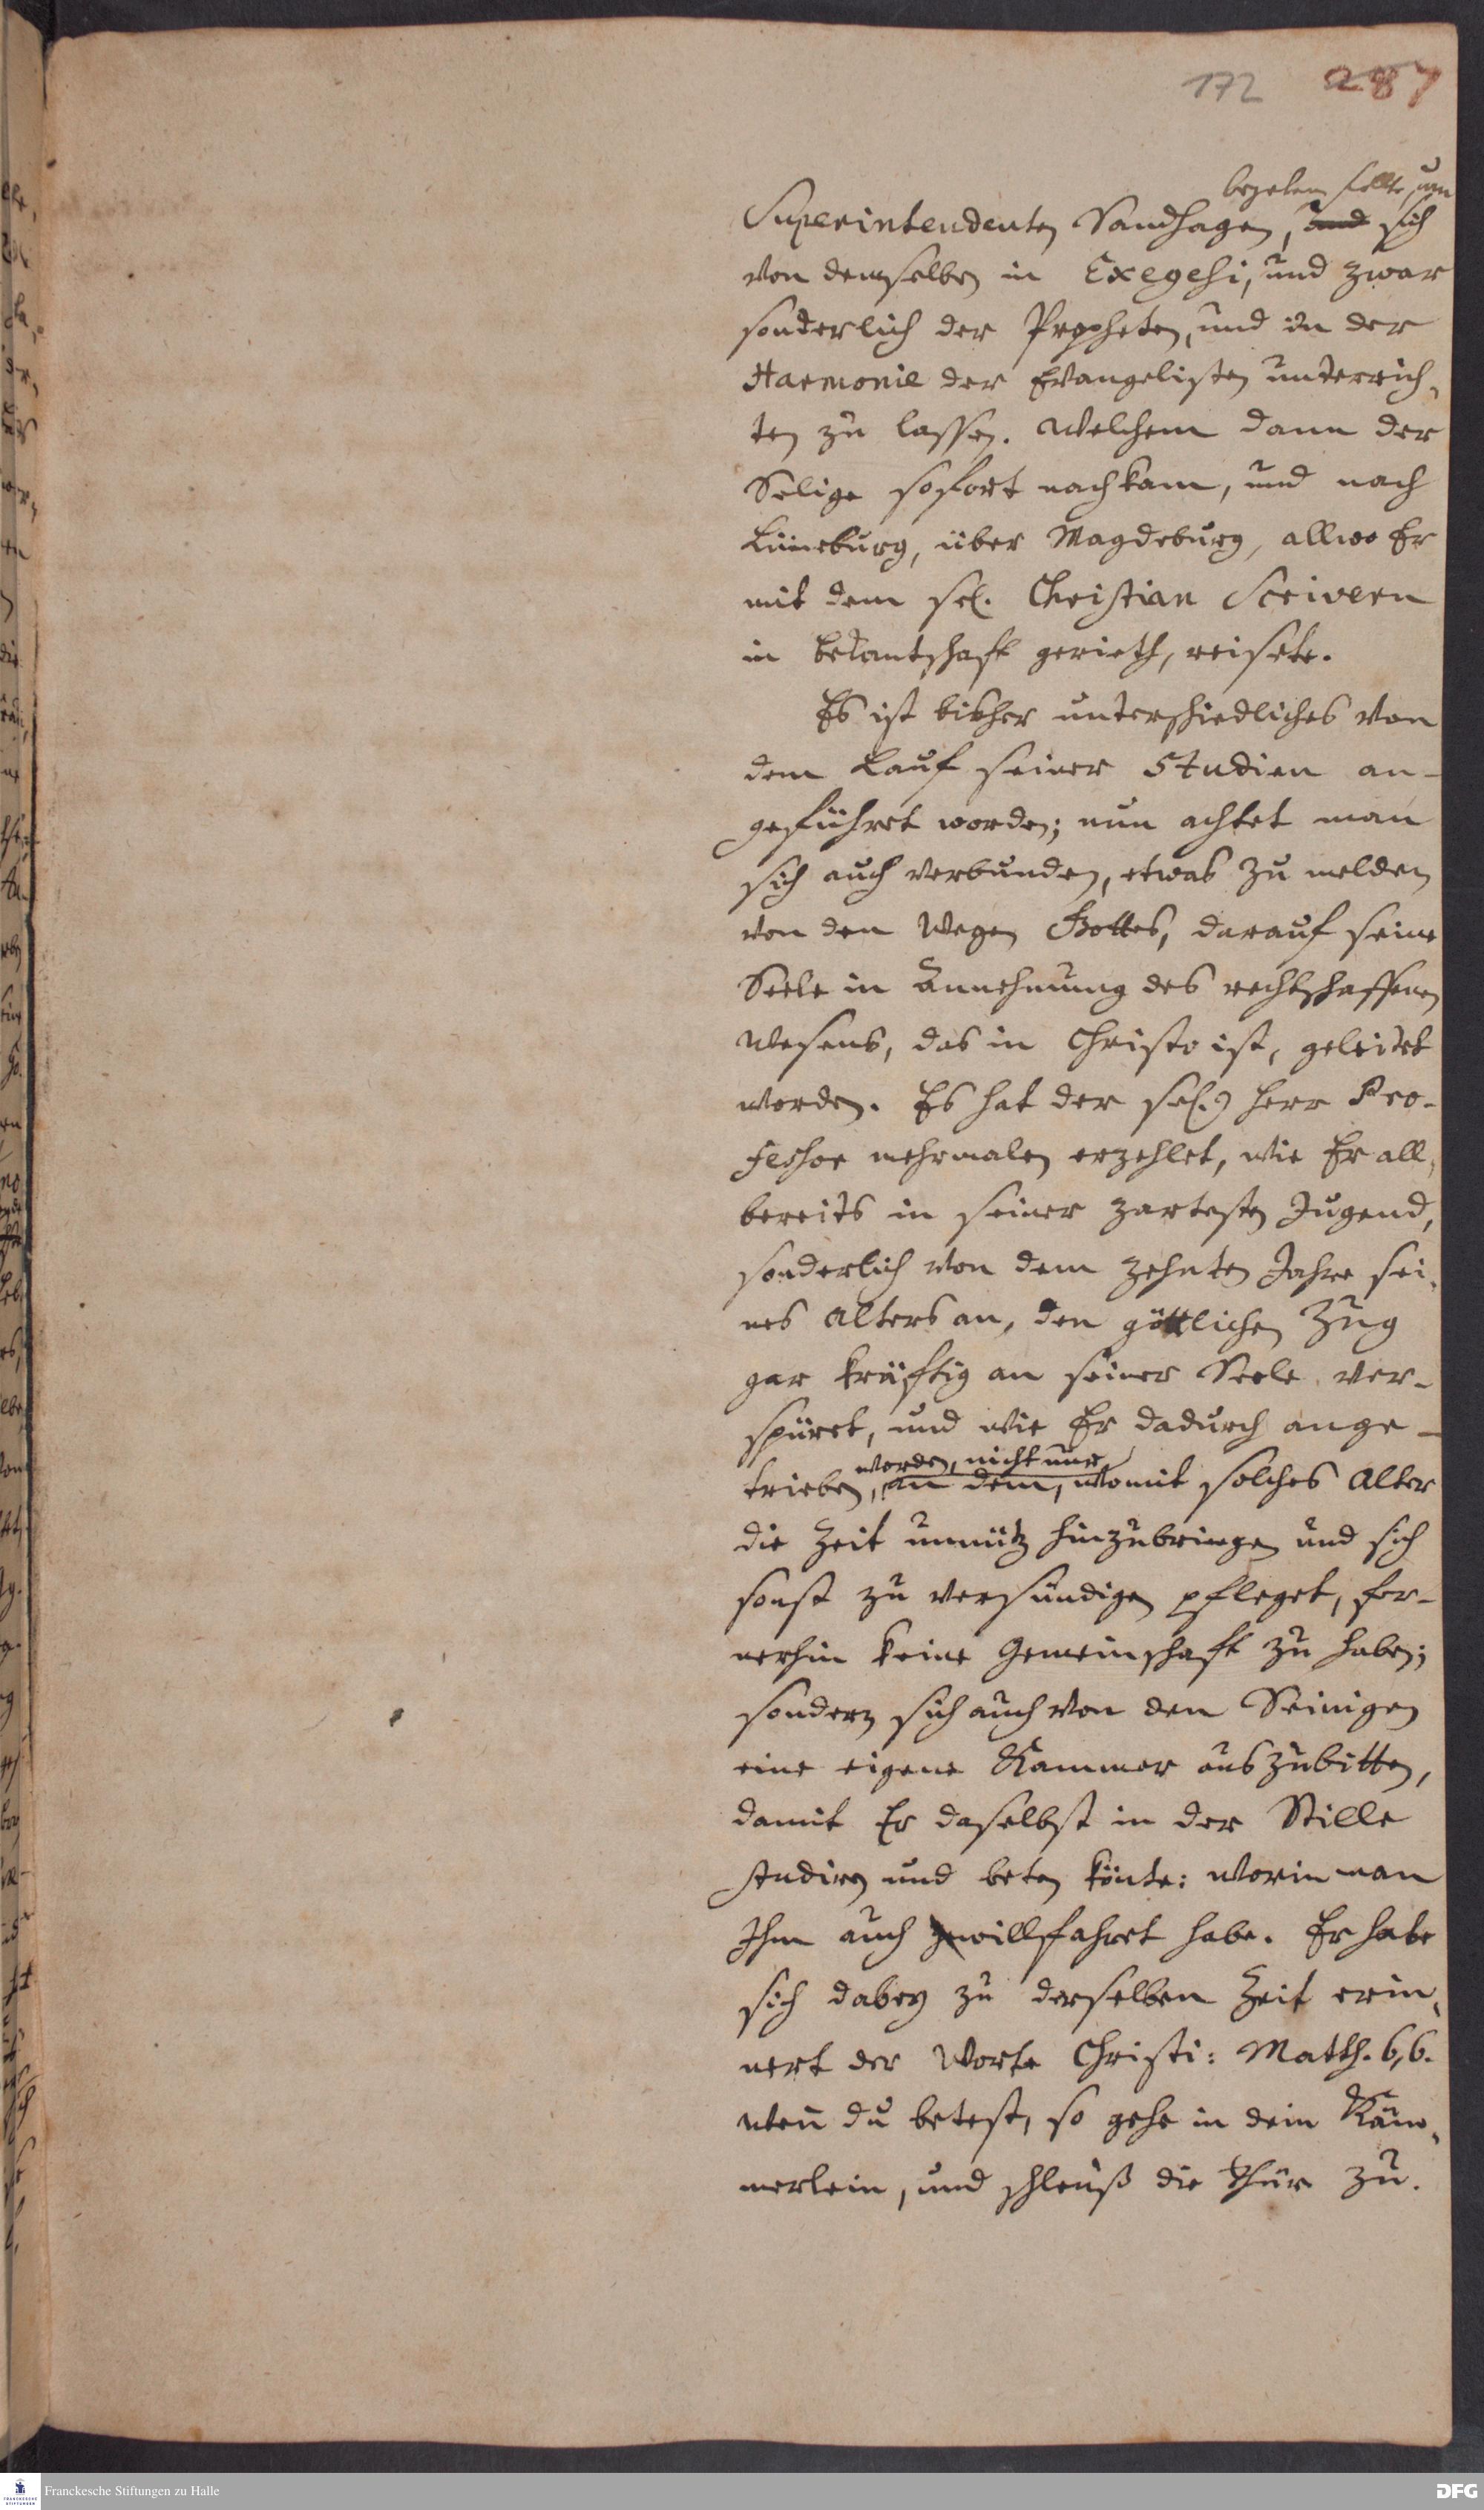 172 287
begeben solte, um
Superintendenten Sandhagen, und sich
von demselben in Exegesi, und zwar
sonderlich der Propheten, und in der
Harmonie der Evangelisten unterrich-
ten zu lassen. Welchem dann der
Selige sofort nachkam, und nach
Lüneburg, über Magdeburg, allwo Er
mit dem sel. Christian Scrivern
in bekantschaft gerieth, reisete.
Es ist bisher unterschiedliches von
dem Lauf seiner Studien an-
geführet worden; nun achtet man
sich auch verbunden, etwas zu melden
von den Wegen Gottes, darauf seine
Seele in Annehmung des rechtschaffenen
Wesens, das in Christo ist, geleitet
worden. Es hat der sel. Herr Pro-
fessor mehrmalen erzehlet, wie Er all-
bereits in seiner zartesten Jugend,
sonderlich von dem zehnten Jahre sei-
nes Alters an, den göttlichen Zug
gar kräftig an seiner Seele ver-
spüret, und wie Er dadurch ange-
worden, nicht nur
trieben, an dem, womit solches Alter
die Zeit unnütz hinzubringen und sich
sonst zu versündigen pfleget, fer-
nerhin keine Gemeinschaft zu haben;
sondern sich auch von den Seinigen
eine eigene Kammer auszubitten,
damit Er daselbst in der Stille
studiren und beten könte: worin man
Ihm auch gewillfahret habe. Er habe
sich dabey zu derselben Zeit erin-
nert der Worte Christi: Matth. 6, 6.
Wenn du betest, so gehe in dein Käm-
merlein, und schleuß die Thür zu.
Franckesche Stiftungen zu Halle
DFG